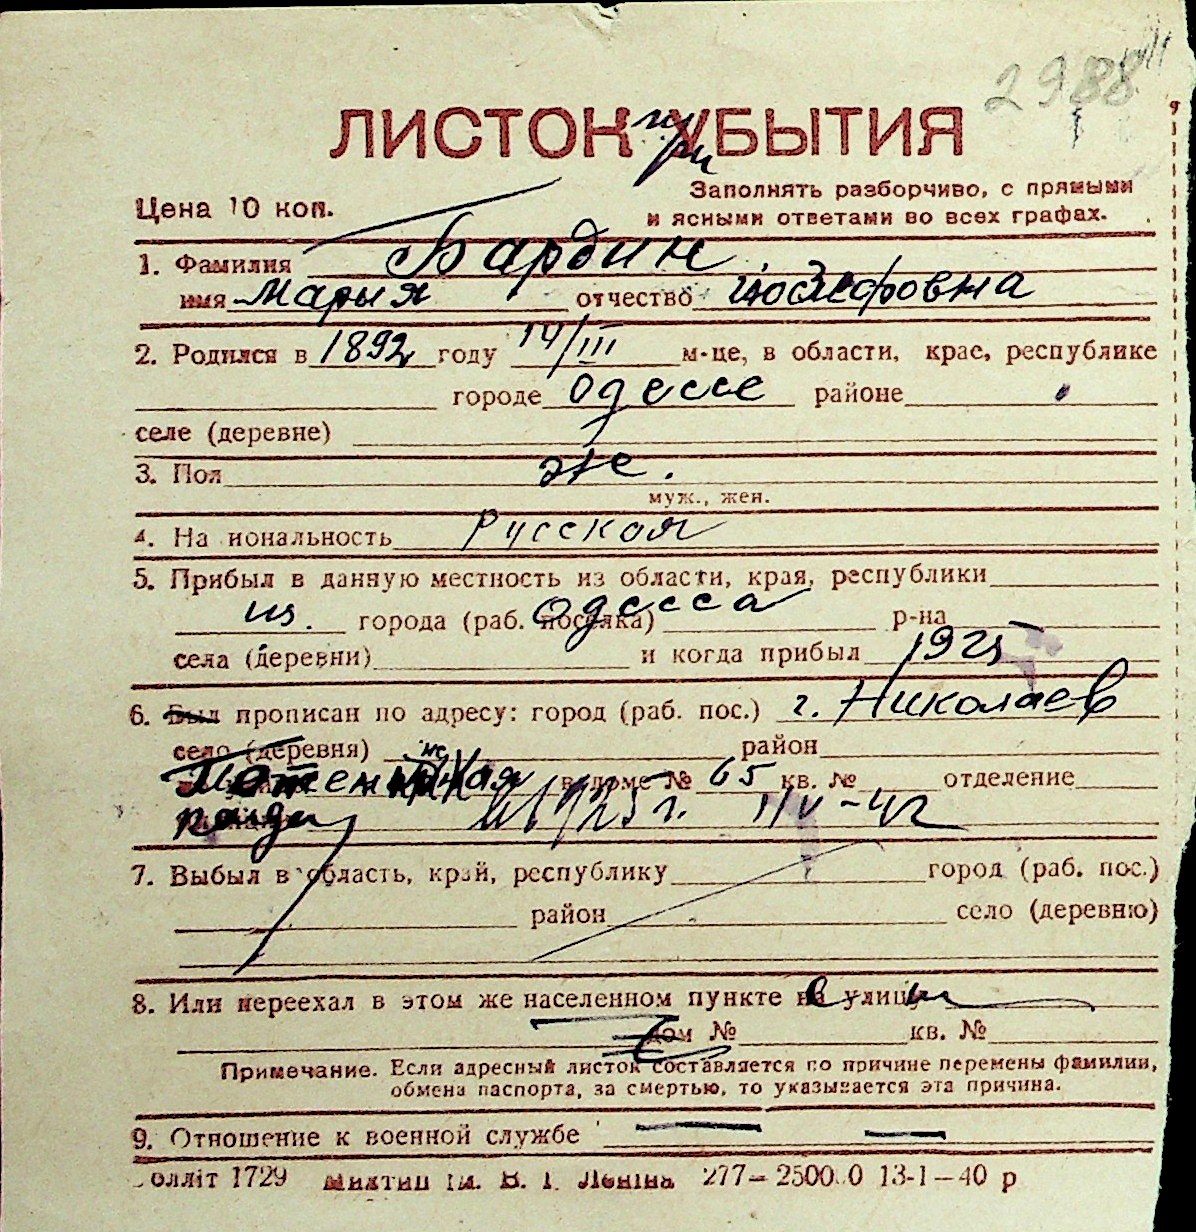 2988
ЛИСТОК УБЫТИЯ
при
Цена 10 коп.
Заполнять разборчиво, с прямыми
и ясными ответами во всех графах.
1. Фамилия Бардин
имя Мария отчество Иозефовна
2. Родился в 1892 году 14/III м-це, в области, крае, республике
городе Одессе районе
селе (деревне)
3. Пол ж.
муж., жен.
4. На иональность Русская
5. Прибыл в данную местность из области, края, республики
из. города (раб. поселка) Одесса р-на
села (деревни) и когда прибыл 1925
6. Был прописан по адресу: город (раб. пос.) г. Николаев
село (деревня) район
в доме № 65 кв. № отделение
1925 г.
7. Выбыл в область, край, республику город (раб. пос.)
район село (деревню)
8. Или переехал в этом же населенном пункте на улицу
дом № кв. №
Примечание. Если адресный листок составляется по причине перемены фамилии,
обмена паспорта, за смертью, то указывается эта причина.
9. Отношение к военной службе — —
олліт 1729 ім. В. І. Леніна 277— 2500 0 13-1—40 р